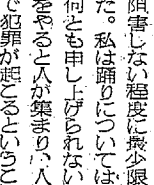 阻害しない程度に最少限
た。私は踊りについては
何とも申し上げられない
をやると人が集まり、人
で犯罪が起こるというこ